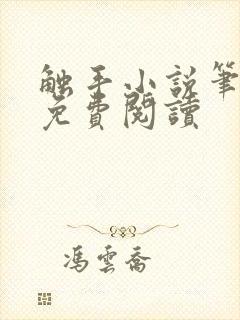 触手小説筆
免費閱讀
馮雲喬